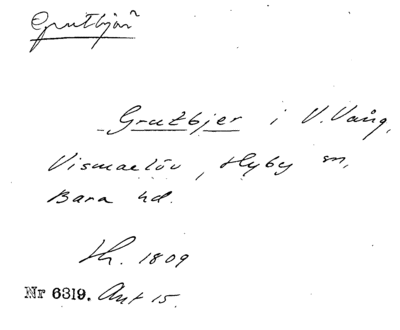 Grutbjär
Grutbjer i V. Vång,
Vismarlöv, Hyby sn,
Bara hd.
Lh. 1809
Nr 6319. Ant 15.